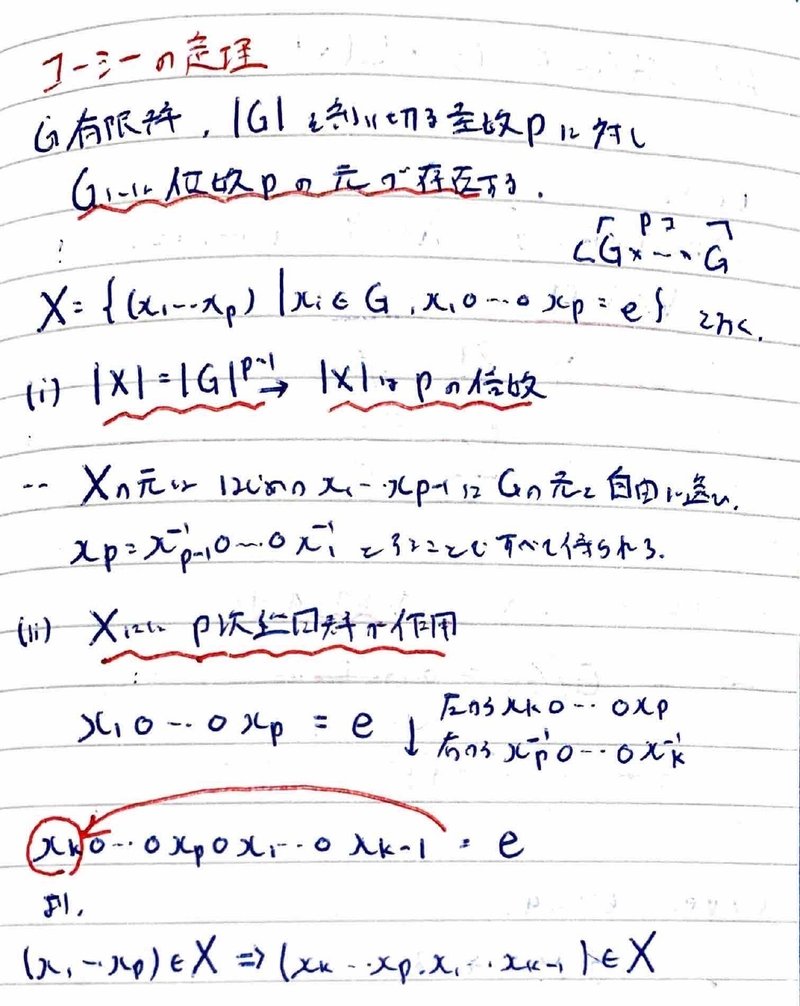 コーシーの定理
G有限群, |G|を割り切る素数pに対し
Gには位数pの元が存在する.
⊂ G×…×G p コ
X = {(x₁…xₚ) | xᵢ ∈ G, x₁∘…∘xₚ = e} とおく.
(i) |X| = |G|ᵖ⁻¹ → |X|はpの倍数
∵ Xの元は はじめの x₁…xₚ₋₁に Gの元を自由に選び,
xₚ = xₚ₋₁⁻¹∘…∘x₁⁻¹ とすることで すべて得られる.
(ii) Xには p次巡回群が作用
x₁∘…∘xₚ = e ↓ 左から xₖ∘…∘xₚ
右から xₚ⁻¹∘…∘xₖ⁻¹
xₖ∘…∘xₚ∘x₁…∘xₖ₋₁ = e
より.
(x₁…xₚ) ∈ X ⇒ (xₖ…xₚ.x₁…xₖ₋₁) ∈ X